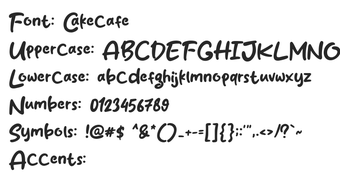 Font: CakeCafe
UpperCase: ABCDEFGHIJKLMNO
LowerCase: abcdefghijklmnopqrstuvwxyz
Numbers: 0123456789
Symbols: !@#$ ^&*()_+-=[]{};:'",.<>/?`~
Accents: